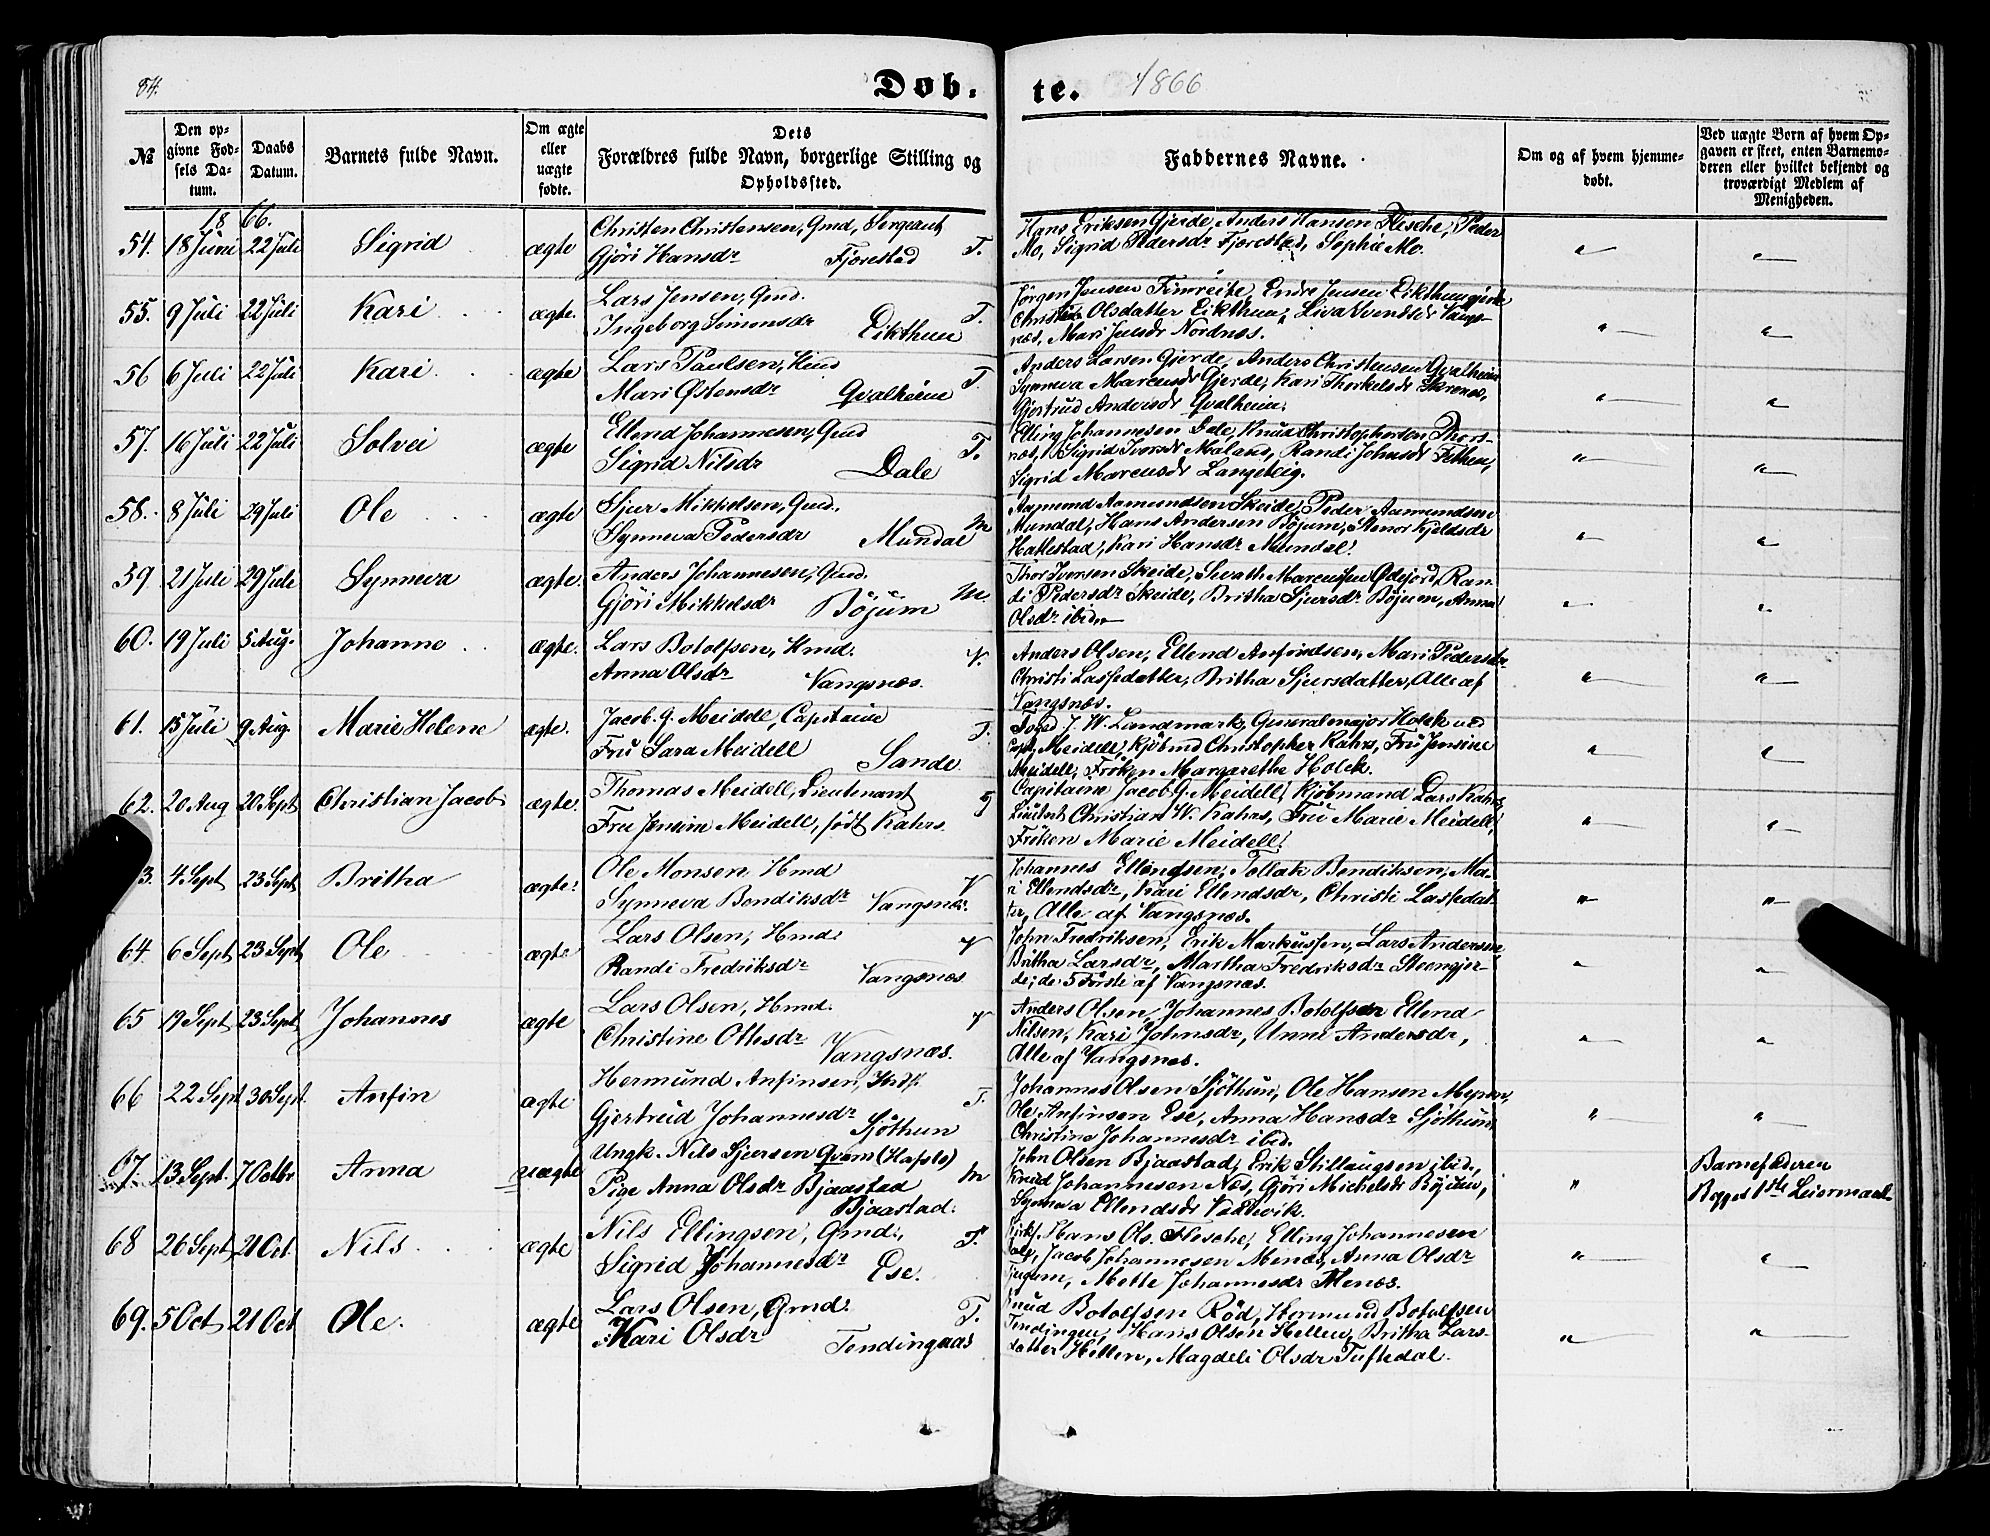 84.
Døb-
te.
1866
No
Den op-
givne Fød-
sels Da-
tum.
Daabs
Datum.
Barnets fulde Navn.
Om ægte
eller
uægte
fødte.
Dets
Forældres fulde Navn, borgerlige Stilling og
Opholdssted.
Faddernes Navne.
Om og af hvem hjemme-
døbt.
Ved uægte Børn af hvem Op-
gaven er skeet, enten Barnemo-
deren eller hvilket bekjendt og
troværdigt Medlem af
Menigheden.
1866.
54. 18 Juni 22 Juli Sigrid ægte
Christen Christensen, Gmd, Sergeant
Gjöri Hansdr Fjærestad T.
Hans Eriksen Gjerde, Anders Hansen Flesche, Peder
Mo, Sigrid Pedersdr Fjærestad, Sophie Mo.
55. 9 Juli 22 Juli Kari ægte.
Lars Jensen, Gmd.
Ingeborg Simonsdr Eikthun T.
Jörgen Jensen Fimreite, Endre Jensen Eikthungjerde
Christi Olsdatter Eikthun, Liva Svendsdr Vangs-
næs, Mari Juelsdr Nordnæs.
56 6 Juli 22 Juli Kari ægte
Lars Paulsen, Hmd
Mari Østensdr Qvalheim T.
Anders Larsen Gjerde, Anders Christensen Qvalheim
Synneva Marcusdr Gjerde, Kari Thorkelsdr Skrenes,
Gjertrud Andersdr Qvalheim.
57. 16 Juli 22 Juli Solvei ægte
Ellend Johannesen, Gmd
Sigrid Nilsdr Dale T.
Elling Johannesen Dale, Knud Christophersen Thors-
næs, Sigrid Iversdr Maland, Randi Johnsdr Fethun,
Sigrid Marcusdr Langeteig.
58. 8 Juli 29 Juli Ole ægte
Sjur Mikkelsen, Gmd.
Synneva Pedersdr Mundal M
Aamund Aamundsen Skeide, Peder Aamundsen
Mundal, Hans Andersen Böjum, Stenor Kjeldsdr
Hatlestad, Kari Hansdr Mundal.
59 21 Juli 29 Juli Synneva ægte.
Anders Johannesen, Gmd.
Gjöri Mikkelsdr Böjum M.
Thor Iversen Skeide, Sivath Marcussen Ødejord, Ran-
di Pedersdr Skeide, Britha Sjursdr Böjum, Anna
Olsdr ibid.
60. 19 Juli 5 Aug. Johanne ægte.
Lars Botolfsen, Hmd.
Anna Olsdr Vangsnæs. V.
Anders Olsen, Ellend Anfindsen, Mari Pedersdr
Christi Lassedatter, Britha Sjursdatter, Alle af
Vangsnæs.
61. 15 Juli 9 Aug. Marie Helene ægte.
Jacob. G. Meidell, Capitaine
Fru Sara Meidell Sande. T.
Foged J. W. Landmark, Generalmajor Holck ved
Capt. Meidell, Kjöbmd Christopher Kahrs, Fru Jensine
Meidell, Fröken Margarethe Holck.
62. 20 Aug 20 Sept Christian Jacob ægte.
Thomas Meidell, Lieutenant
Fru Jensine Meidell, født Kahrs.
Capitaine Jacob G. Meidell, Kjöbmand Lars Kahrs,
Lieutent Christian W. Kahrs, Fru Marie Meidell,
Fröken Marie Meidell.
3. 4 Sept 23 Sept Britha ægte.
Ole Monsen Hmd
Synneva Bendiksdr Vangsnæs. V
Johannes Ellendsen, Tollak Bendiksen, Ma-
ri Ellendsdr, Kari Ellendsdr, Christi Lassedat-
ter, Alle af Vangsnæs.
64. 6 Sept 23 Sept Ole ægte
Lars Olsen, Hmd.
Randi Fredriksdr Vangsnæs V
John Fredriksen, Erik Markussen, Lars Andersen
Britha Larsdr, Martha Fredriksdr Steengjer-
de; de 5 Förste af Vangsnæs.
65 19 Sept 23 Sept Johannes ægte
Lars Olsen, Hmd.
Christine Ottesdr Vangsnæs. V
Anders Olsen, Johannes Botolfsen Ellend
Nilsen, Kari Johnsdr, Unni Andersdr,
Alle af Vangsnes.
66 22 Sept 30 Sept. Anfin ægte
Hermund Anfinsen, Indf.
Gjertrud Johannesdr Sjöthun T.
Johannes Olsen Sjöthun, Ole Hansen Meren,
Ole Anfinsen Ese, Anna Hansdr Sjöthun,
Christina Johannesdr ibid.
67. 13 Sept. 7 Octbr Anna uægte
Ungk. Nils Sjursen Qvam (Hafslo)
Pige Anna Olsdr Bjaastad M
Bjaastad.
John Olsen Bjaastad, Erik Stillaugsen ibid.,
Knud Johannesen Næs, Gjöri Mickelsdr Böjum,
Synneva Ellendsdr Vallevik.
Barnefaderen
Begges 1ste Leiermaal
68 26 Sept, 21 Oct. Nils ægte
Nils Ellingsen, Gmd.,
Sigrid Johannesdr Ese. T.
Kirks. Hans Ols. Flesche, Elling Johannesen
Dale, Jacob Johannesen Menæs, Anna Olsdr
Tjugum, Mette Johannesdr Menæs.
69. 5 Oct 21 Oct Ole. ægte
Lars Olsen, Gmd.
Kari Olsdr Tendingaas T.
Knud Botolfsen Röd, Hermund Botolfsen
Tendingen, Hans Olsen Hellen, Britha Lars-
datter Hellen, Magdeli Olsdr Tuftedal.